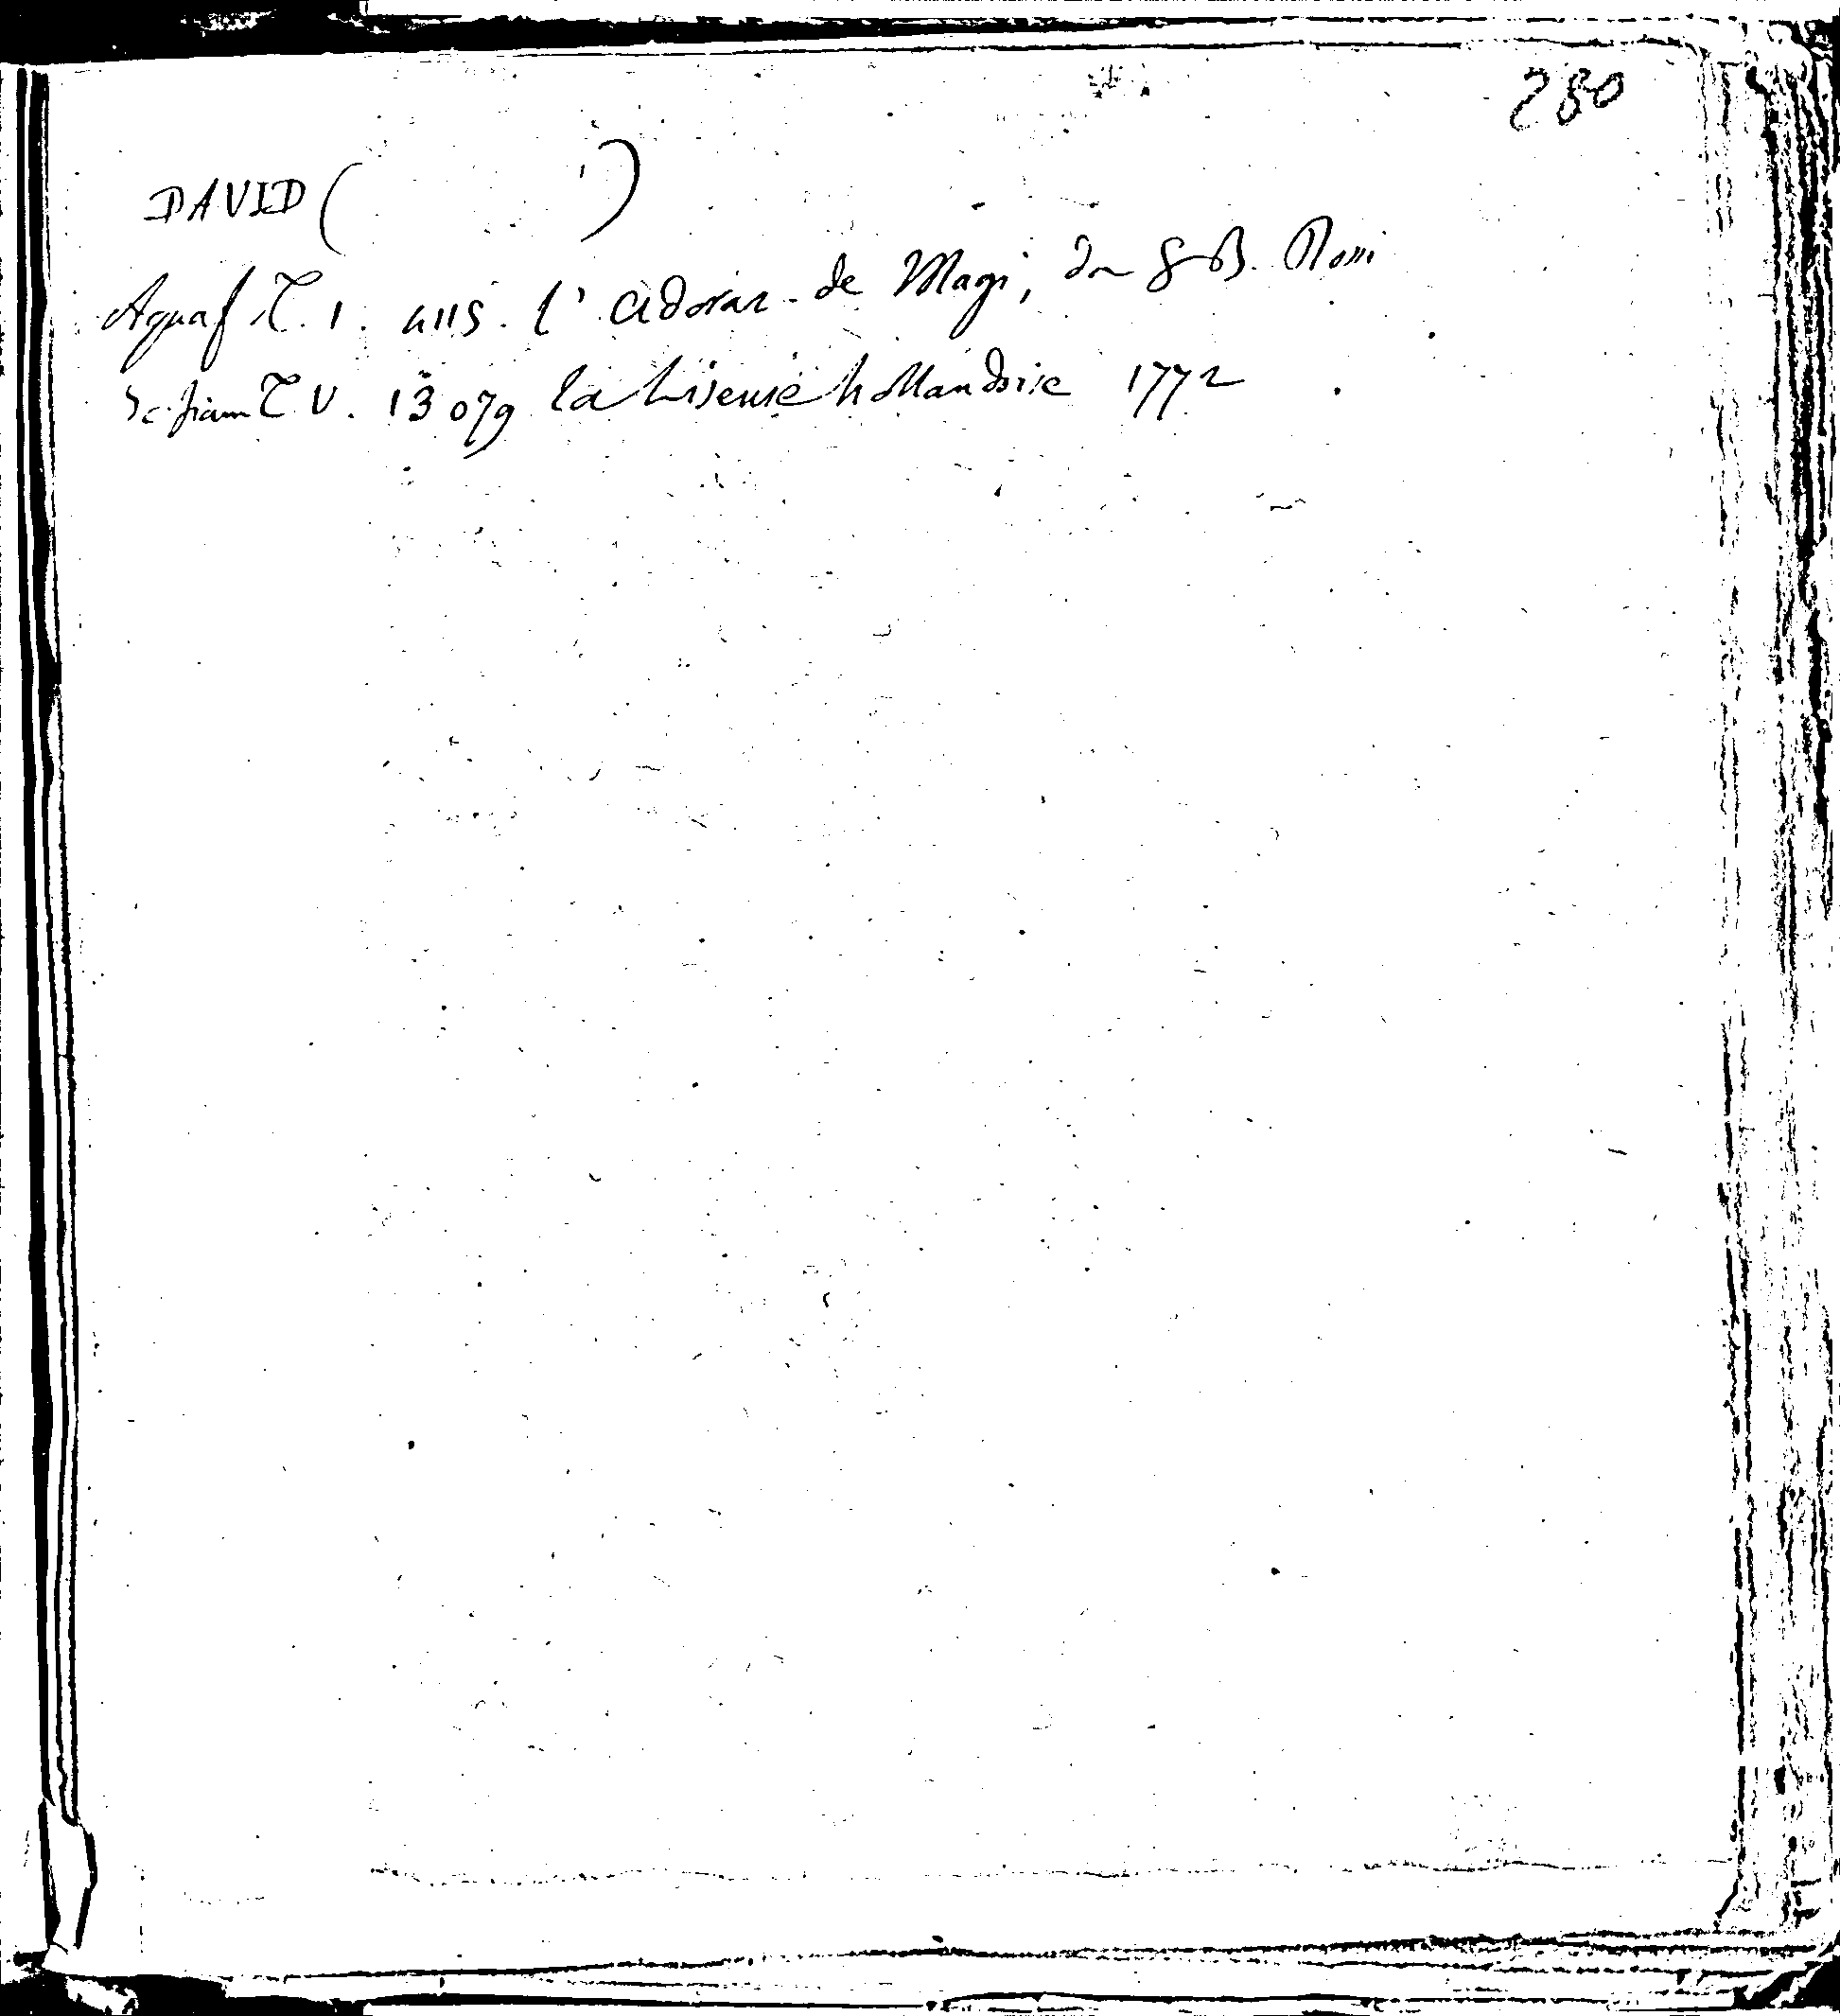 280
DAVID ( )
Aquaf T. 1. 4115. l'Adoraz. de Magi, da G.B. Rossi
T. V. 13079 la Liseuse hollandoise 1772